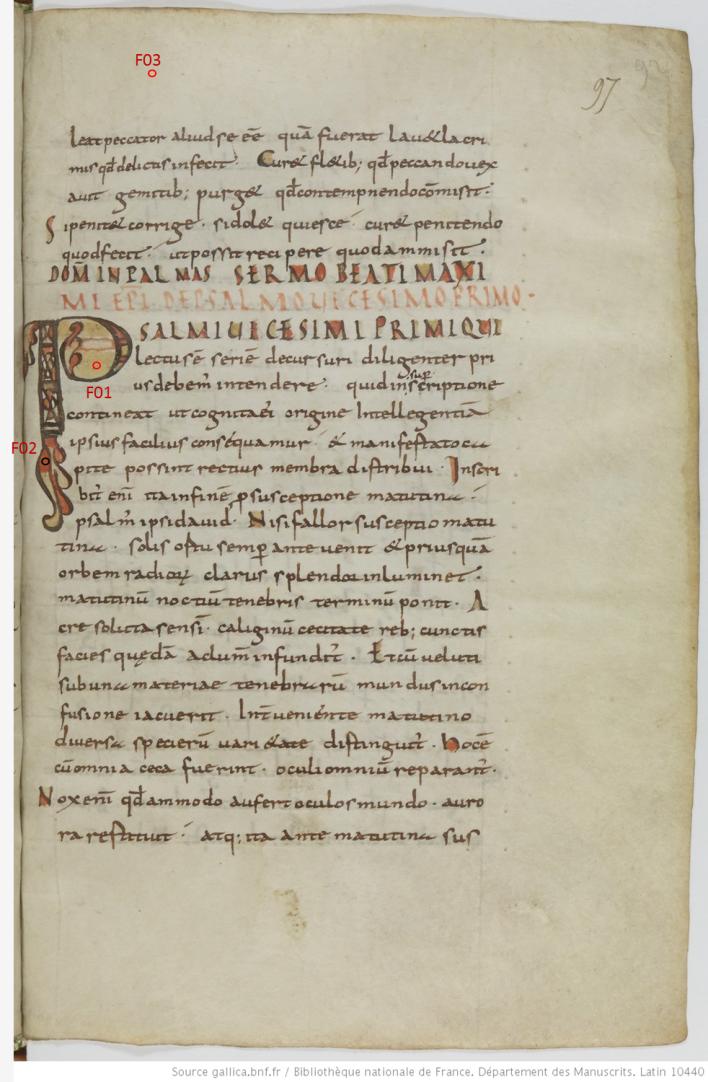 F03
97
leat peccator aliud se eē quā fuerat lau&lacri
mis qđ delictis infecit. Cur& fl&ib; qđ peccando uex
auit gemitib; purg& qđ contempnendo cōmisit.
Si penit& corrige. si dol& quiesce cur& penitendo
quod fecit. ut possit recipere quod ammisit.
DOM̄ IN PALMAS SERMO BEATI MAXI
MI EP̄I DE PSALMO UICESIMO PRIMO
PSALMI UICESIMI PRIMI QUI
lectus ē seriē decursuri diligenter pri
F01
us debem̄ intendere. quid insuperscriptione
contineat ut cognita ei origine Intellegentiā
F02
ipsius facilius consequamur & manifestato ca
pite possint rectius membra distribui. Inscri
bit̄ enī ita in finē p susceptione matutina
psalm̄ ipsi dauid. Nisi fallor susceptio matu
tina. solis ortu semp ante uenit & priusquā
orbem radioꝝ clarus splendor inluminet.
matutinū noctiū tenebris terminū ponit. A
cre solita sensī. caliginū cecitate reb; cunctis
facies quędā ac lum̄ infundit̄. Et cū ueluti
sub una materiae tenebrarū mundus incon
fusione iacuerit. Int̄ueniente matutino
diuersa specierū uari&ate distinguit̄. hoc ē
cū omnia ceca fuerint. oculi omniū reparant̄.
Nox enī qđammodo aufert oculos mundo. auro
ra restituit. atq; ita ante matutina sus
Source gallica.bnf.fr / Bibliothèque nationale de France. Département des Manuscrits. Latin 10440